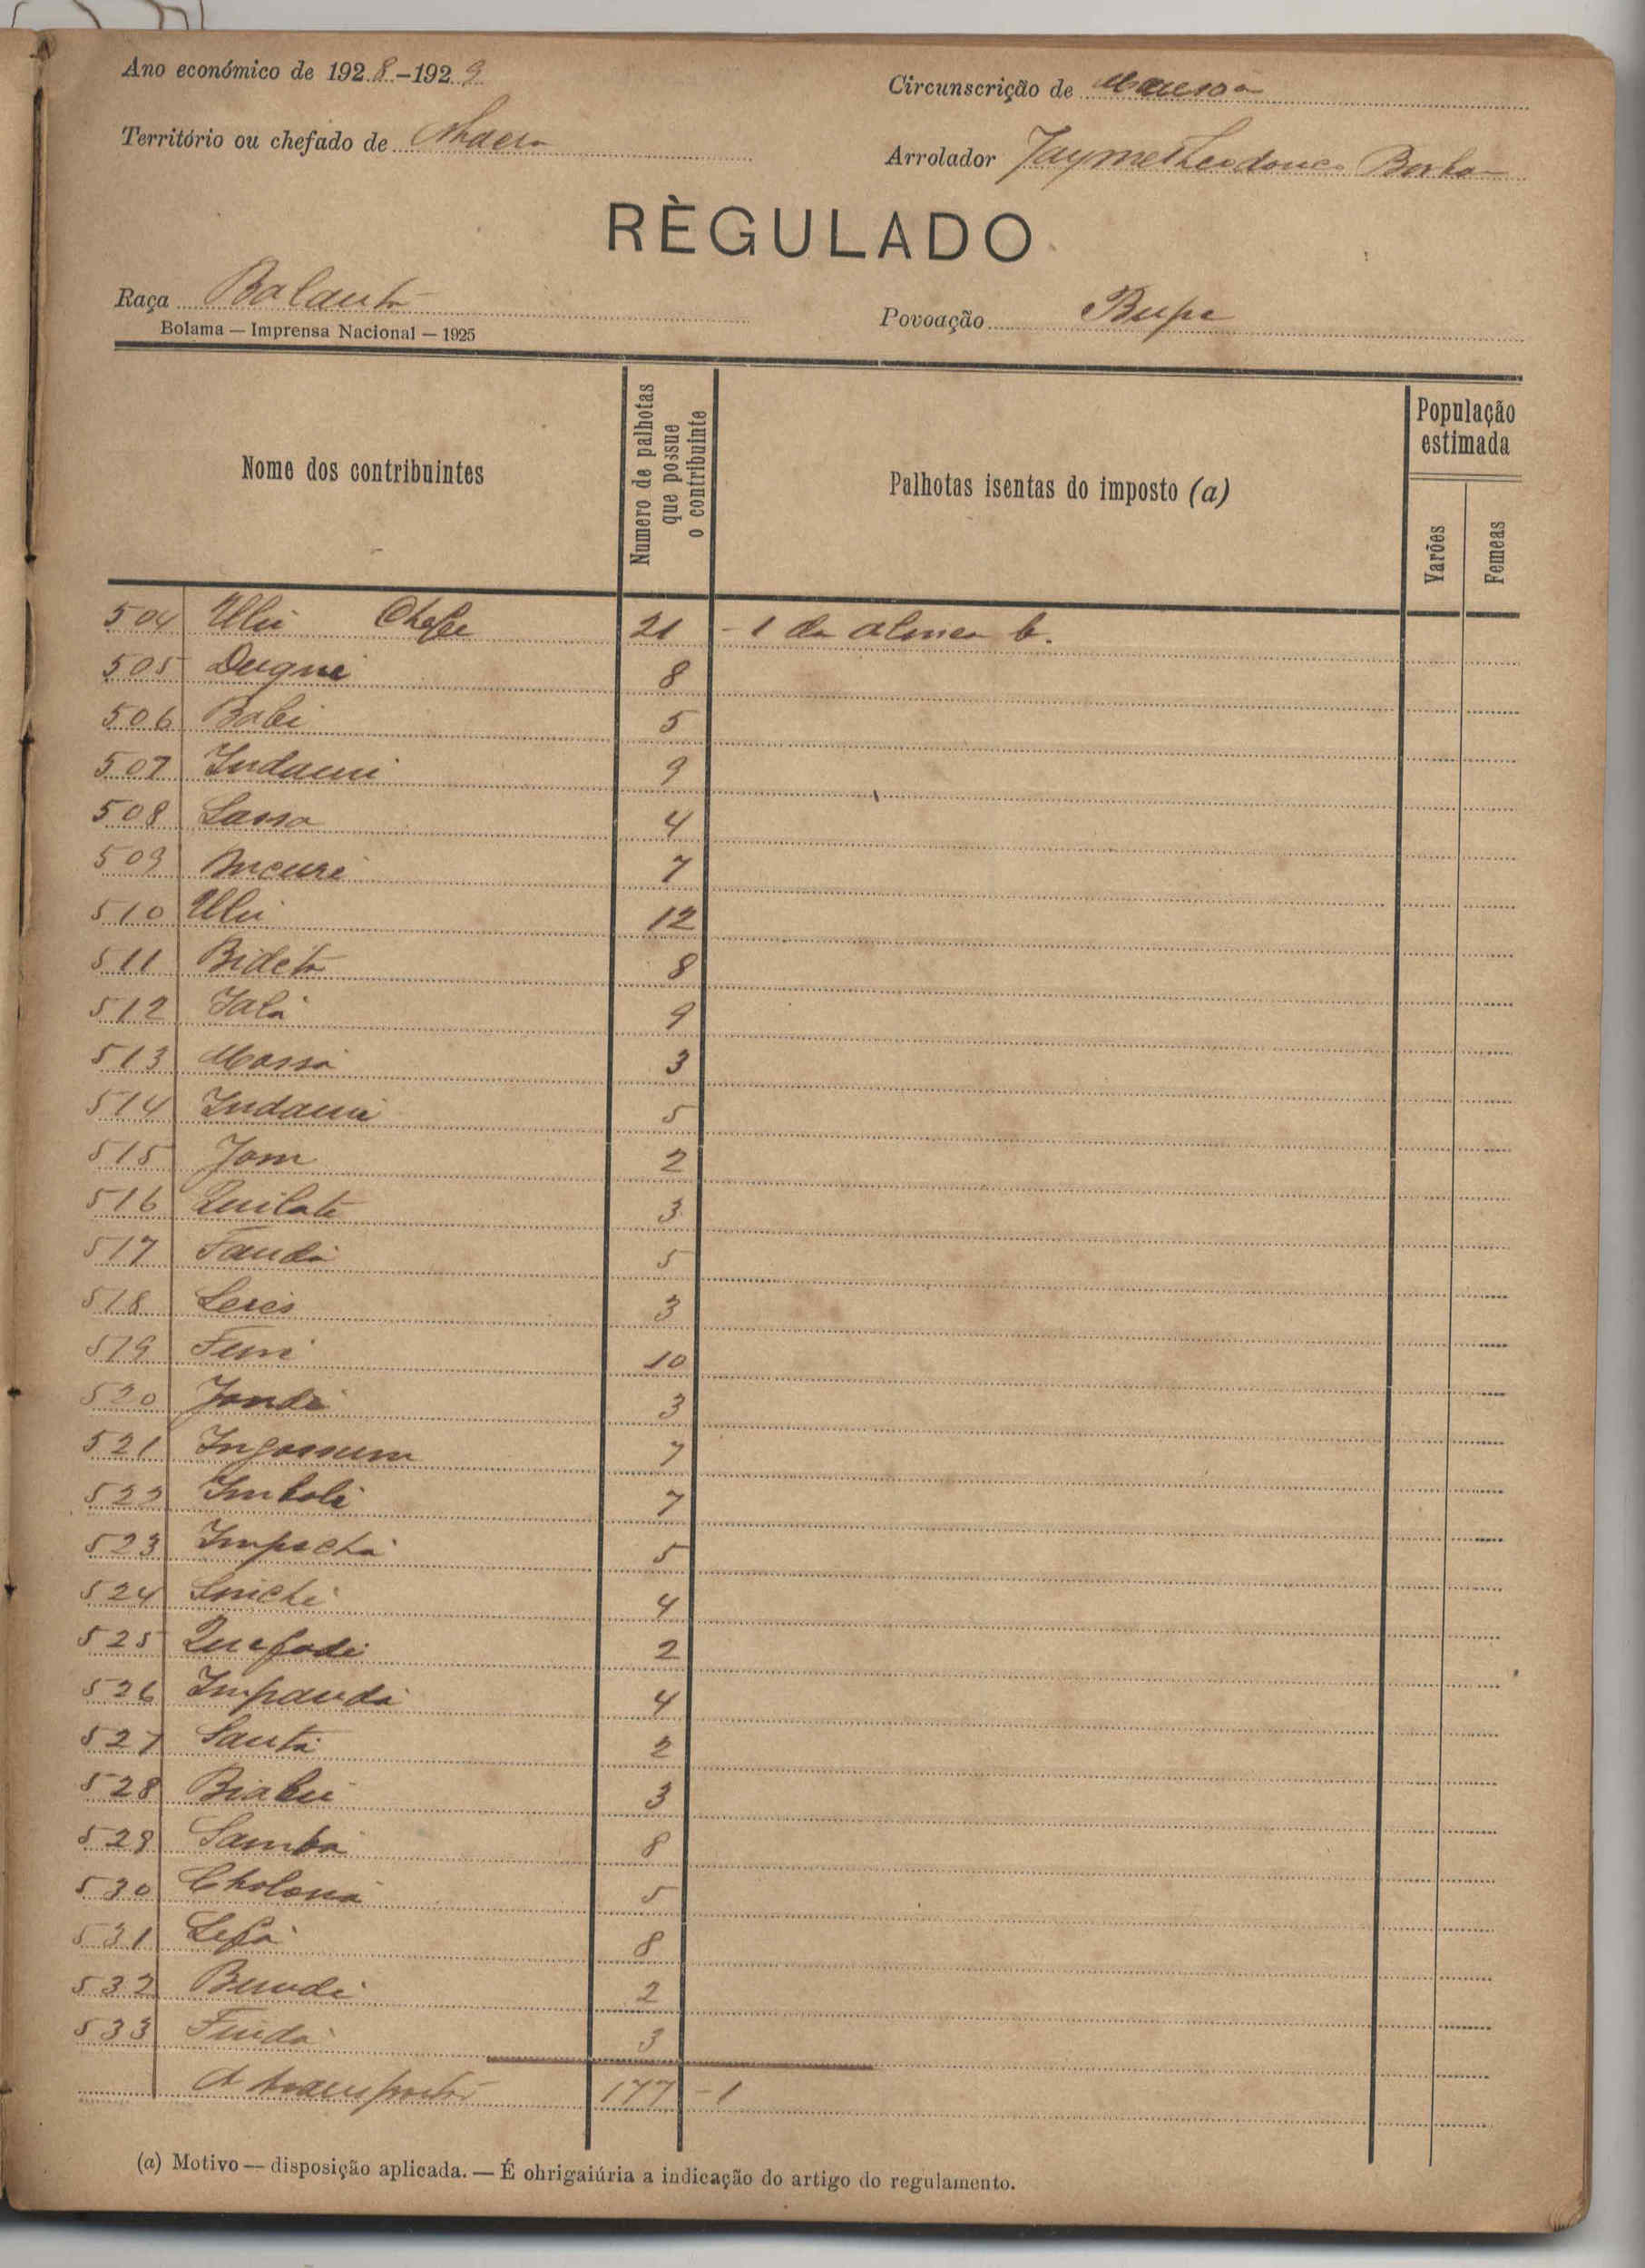 Ano económico de 1928-1929
Circunscrição de Mansoa
Território ou chefado de Nhacra
Arrolador Jayme Theodouco Barbo
RÈGULADO
Raça Balanta
Povoação Bupe
Bolama — Imprensa Nacional — 1925
Nome dos contribuintes
Numero de palhotas que possue o contribuinte
Palhotas isentas do imposto (a)
População estimada
Varões
Femeas
504 Ulii Chefe 21 - 1 da alinea b.
505 Dugne 8
506 Babi 5
507 Indami 9
508 Sansa 4
509 Incuri 7
510 Ulii 12
511 Bideta 8
512 Jalá 9
513 Massa 3
514 Indami 5
515 Jam 2
516 Quilate 3
517 Tanda 5
518 3
519 10
520 3
521 7
522 Imbali 7
523 Impachá 5
524 4
525 Quefade 2
526 Impanda 4
527 Santa 2
528 3
529 Samba 8
530 5
531 Lefá 8
532 Bunde 2
533 Finda 3
A transportar 177 - 1
(a) Motivo — disposição aplicada. — É ohrigaiúria a indicação do artigo do regulamento.